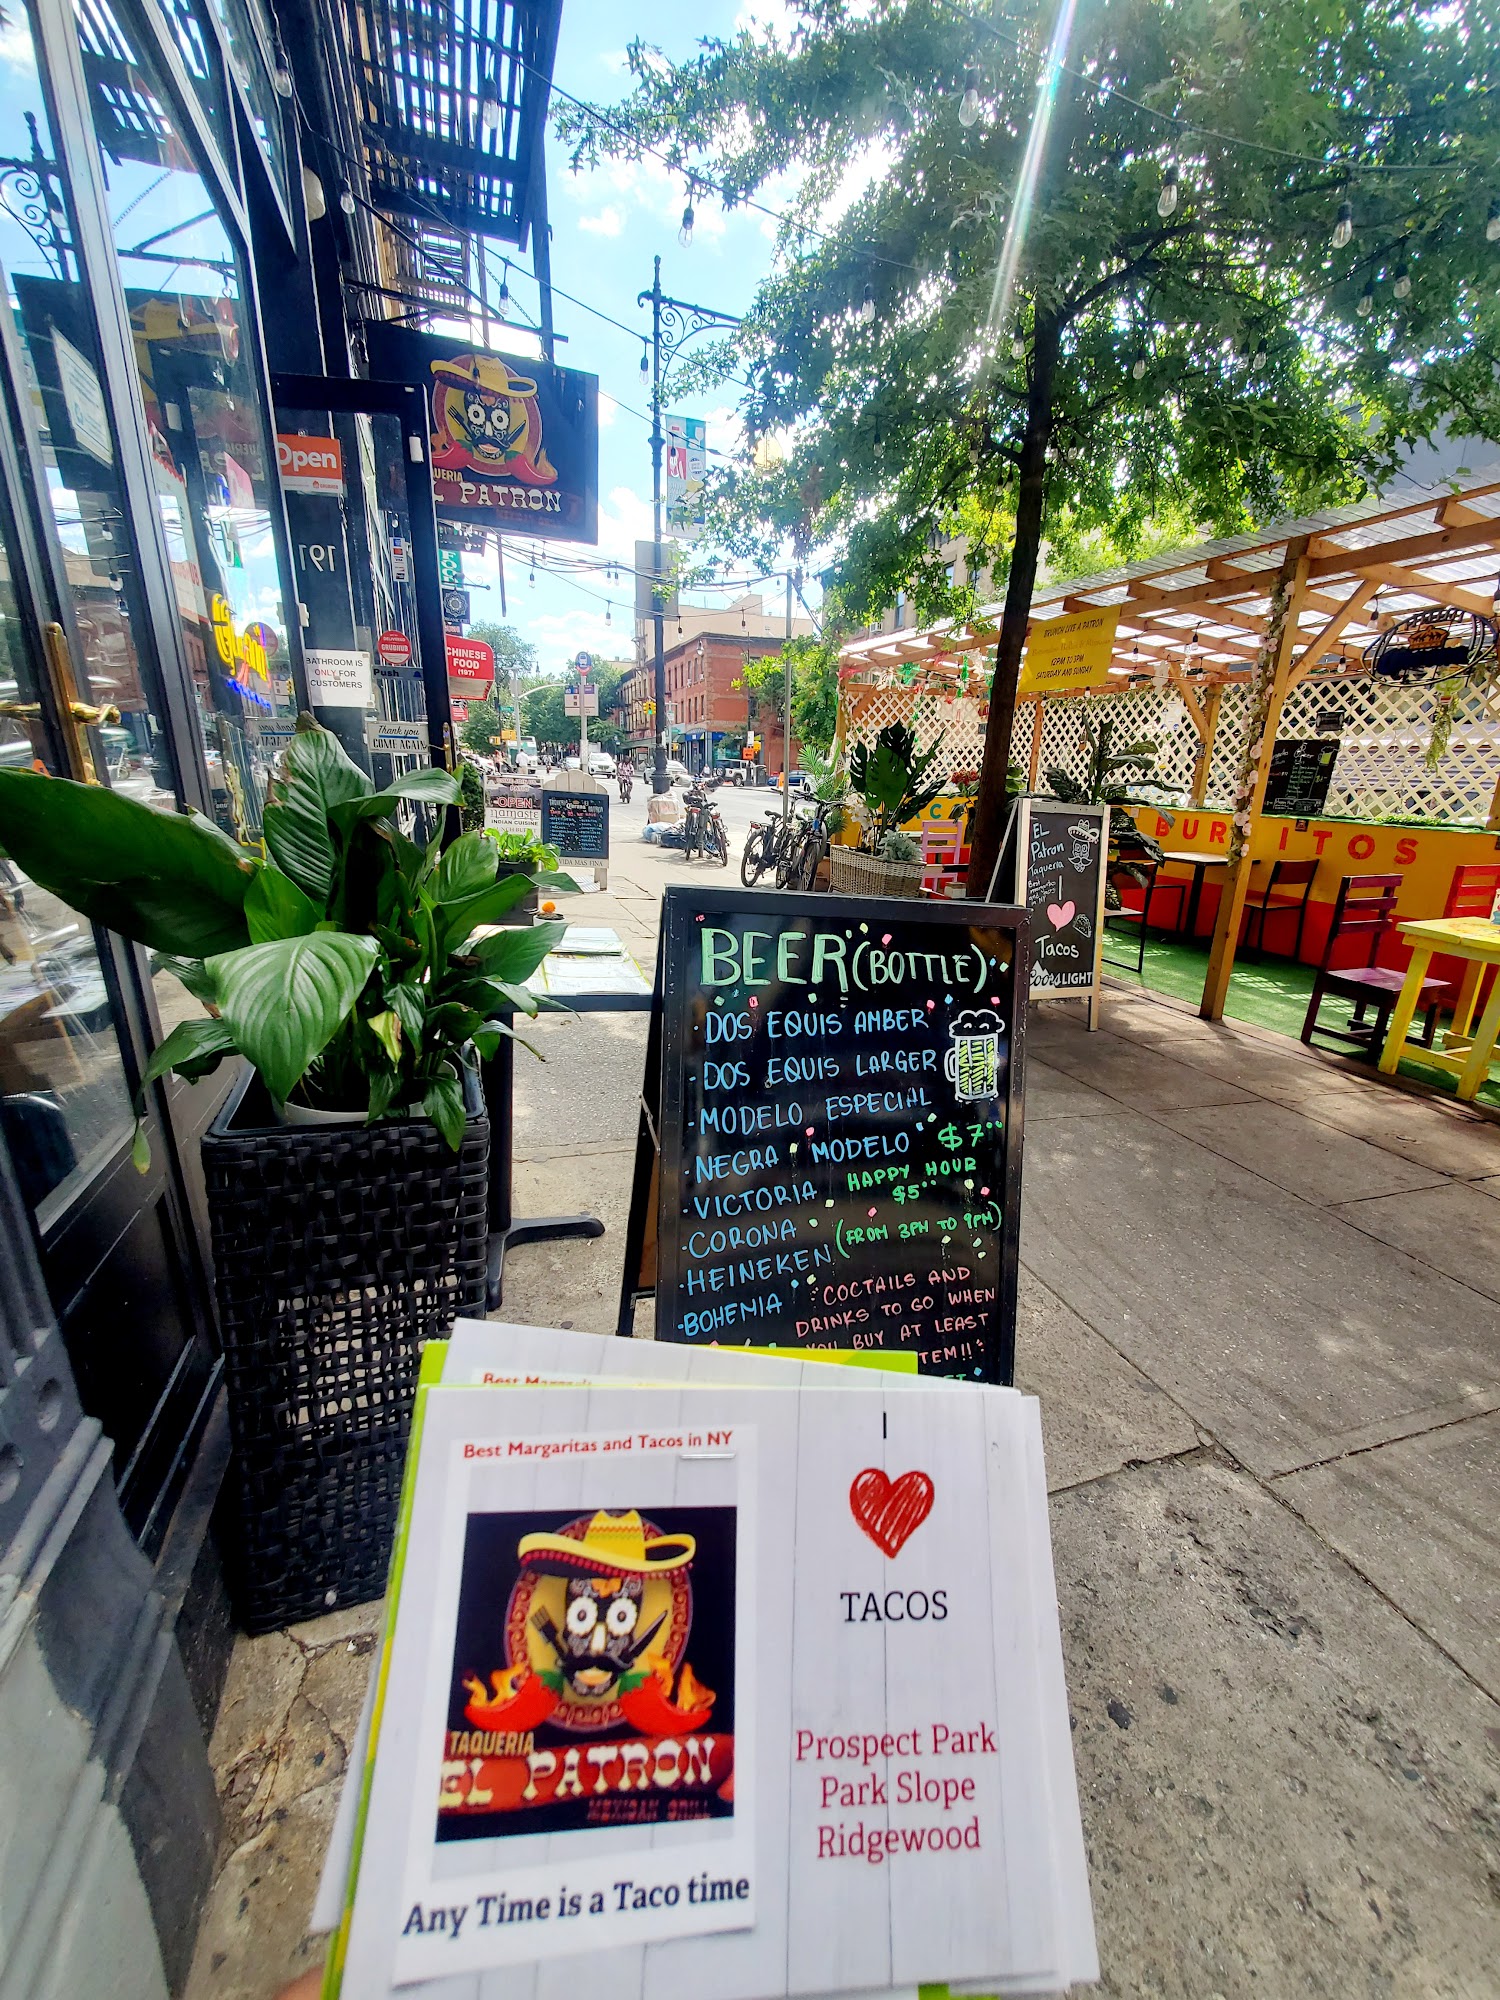 Open
GRUBHUB
191
BATHROOM IS
ONLY FOR
CUSTOMERS
DELIVERED
GRUBHUB
Push
Thank you
COME AGAIN
UERIA
EL PATRON
CHINESE
FOOD
(197)
OPEN
namaste
INDIAN CUISINE
BRUNCH LIKE A PATRON
12PM TO 3PM
SATURDAY AND SUNDAY
BURRITOS
EL
Patron
Taqueria
I
Tacos
Coors LIGHT
BEER (BOTTLE)
·DOS EQUIS AMBER
·DOS EQUIS LARGER
·MODELO ESPECIAL
·NEGRA MODELO $7
·VICTORIA HAPPY HOUR
$5
·CORONA (FROM 3PM TO 9PM)
·HEINEKEN
·BOHEMIA "COCTAILS AND
DRINKS TO GO WHEN
YOU BUY AT LEAST
TEM!!"
Best Margaritas and Tacos in NY
TAQUERIA
EL PATRON
MEXICAN GRILL
Any Time is a Taco time
I
TACOS
Prospect Park
Park Slope
Ridgewood